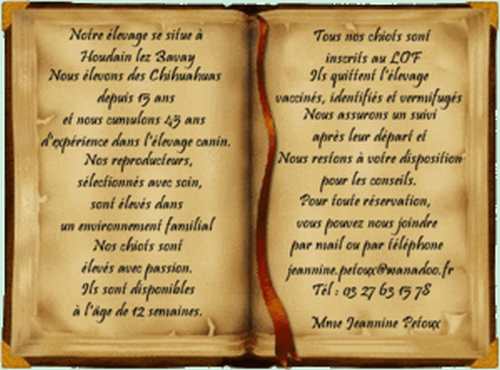 Notre élevage se situe à
Houdain lez Bavay
Nous élevons des Chihuahuas
depuis 15 ans
et nous cumulons 43 ans
d'expérience dans l'élevage canin.
Nos reproducteurs,
sélectionnés avec soin,
sont élevés dans
un environnement familial
Nos chiots sont
élevés avec passion.
Ils sont disponibles
à l'âge de 12 semaines.
Tous nos chiots sont
inscrits au LOF
Ils quittent l'élevage
vaccinés, identifiés et vermifugés
Nous assurons un suivi
après leur départ et
Nous restons à votre disposition
pour les conseils.
Pour toute réservation,
vous pouvez nous joindre
par mail ou par téléphone
jeannine.petoux@wanadoo.fr
Tél : 03 27 63 15 78
Mme Jeannine Petoux